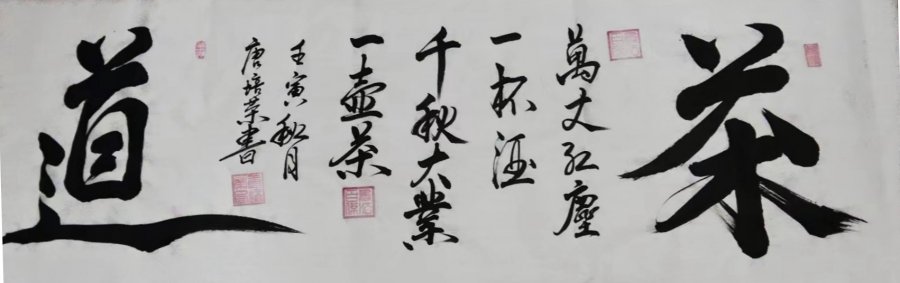 茶
萬丈紅塵
一杯酒
千秋大業
一壺茶
壬寅秋月
唐培榮書
道